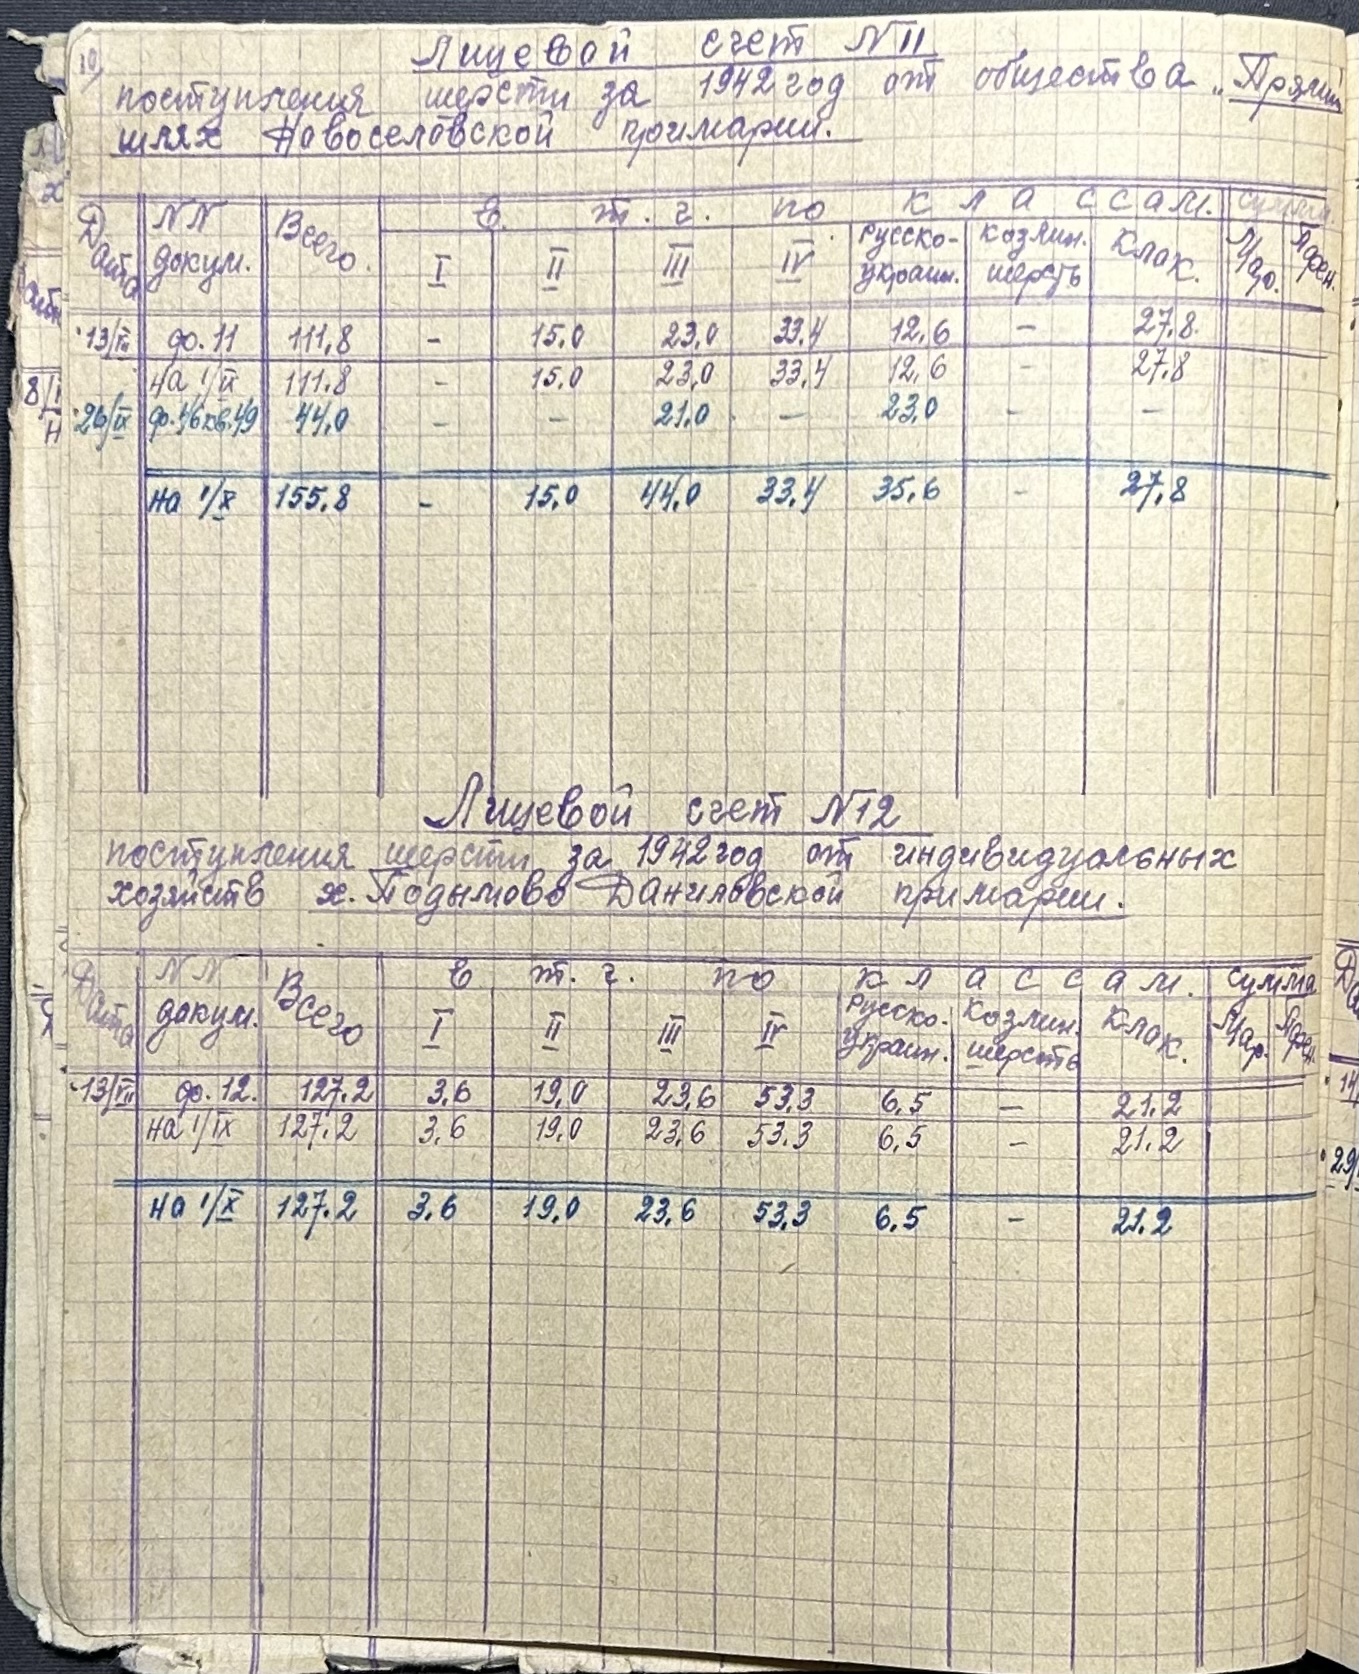 10
Лицевой счет N 11
поступления шерсти за 1942 год от общества „Прямий
шлях Новоселовской примарии.
Дата NN докум. Всего в т. ч. по классам. сумма
I II III IV Русско-украин. козлин. шерсть Клок. Мар. Пфен.
13/VII ф. 11 111,8 - 15,0 23,0 33,4 12,6 - 27,8
на 1/IX 111.8 - 15,0 23,0 33,4 12,6 - 27,8
26/IX 44,0 - - 21,0 - 23,0 - -
на 1/X 155,8 - 15,0 44,0 33,4 35,6 - 27,8
Лицевой счет N 12
поступления шерсти за 1942 год от индивидуальных
хозяйств х. Подымово Даниловской примарии.
Дата NN докум. Всего в т. ч. по классам. сумма
I II III IV Русско-украин. Козлин. шерсть Клок. Мар. Пфен.
13/VII ф. 12. 127.2 3,6 19,0 23,6 53,3 6,5 - 21.2
на 1/IX 127.2 3,6 19,0 23,6 53.3 6,5 - 21.2
на 1/X 127.2 3,6 19,0 23,6 53,3 6,5 - 21.2